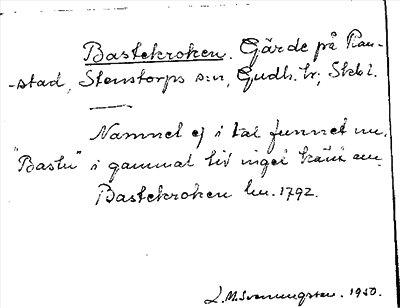 Bastekroken. Gärde på Ran-
-stad, Stenstorps s:n, Gudh. hr; Skbl.
Namnet ej i tal funnet nu.
"Bastu" i gammal tid inget känt om.
Bastekroken lm. 1792.
L.M. Svenungsson. 1950.